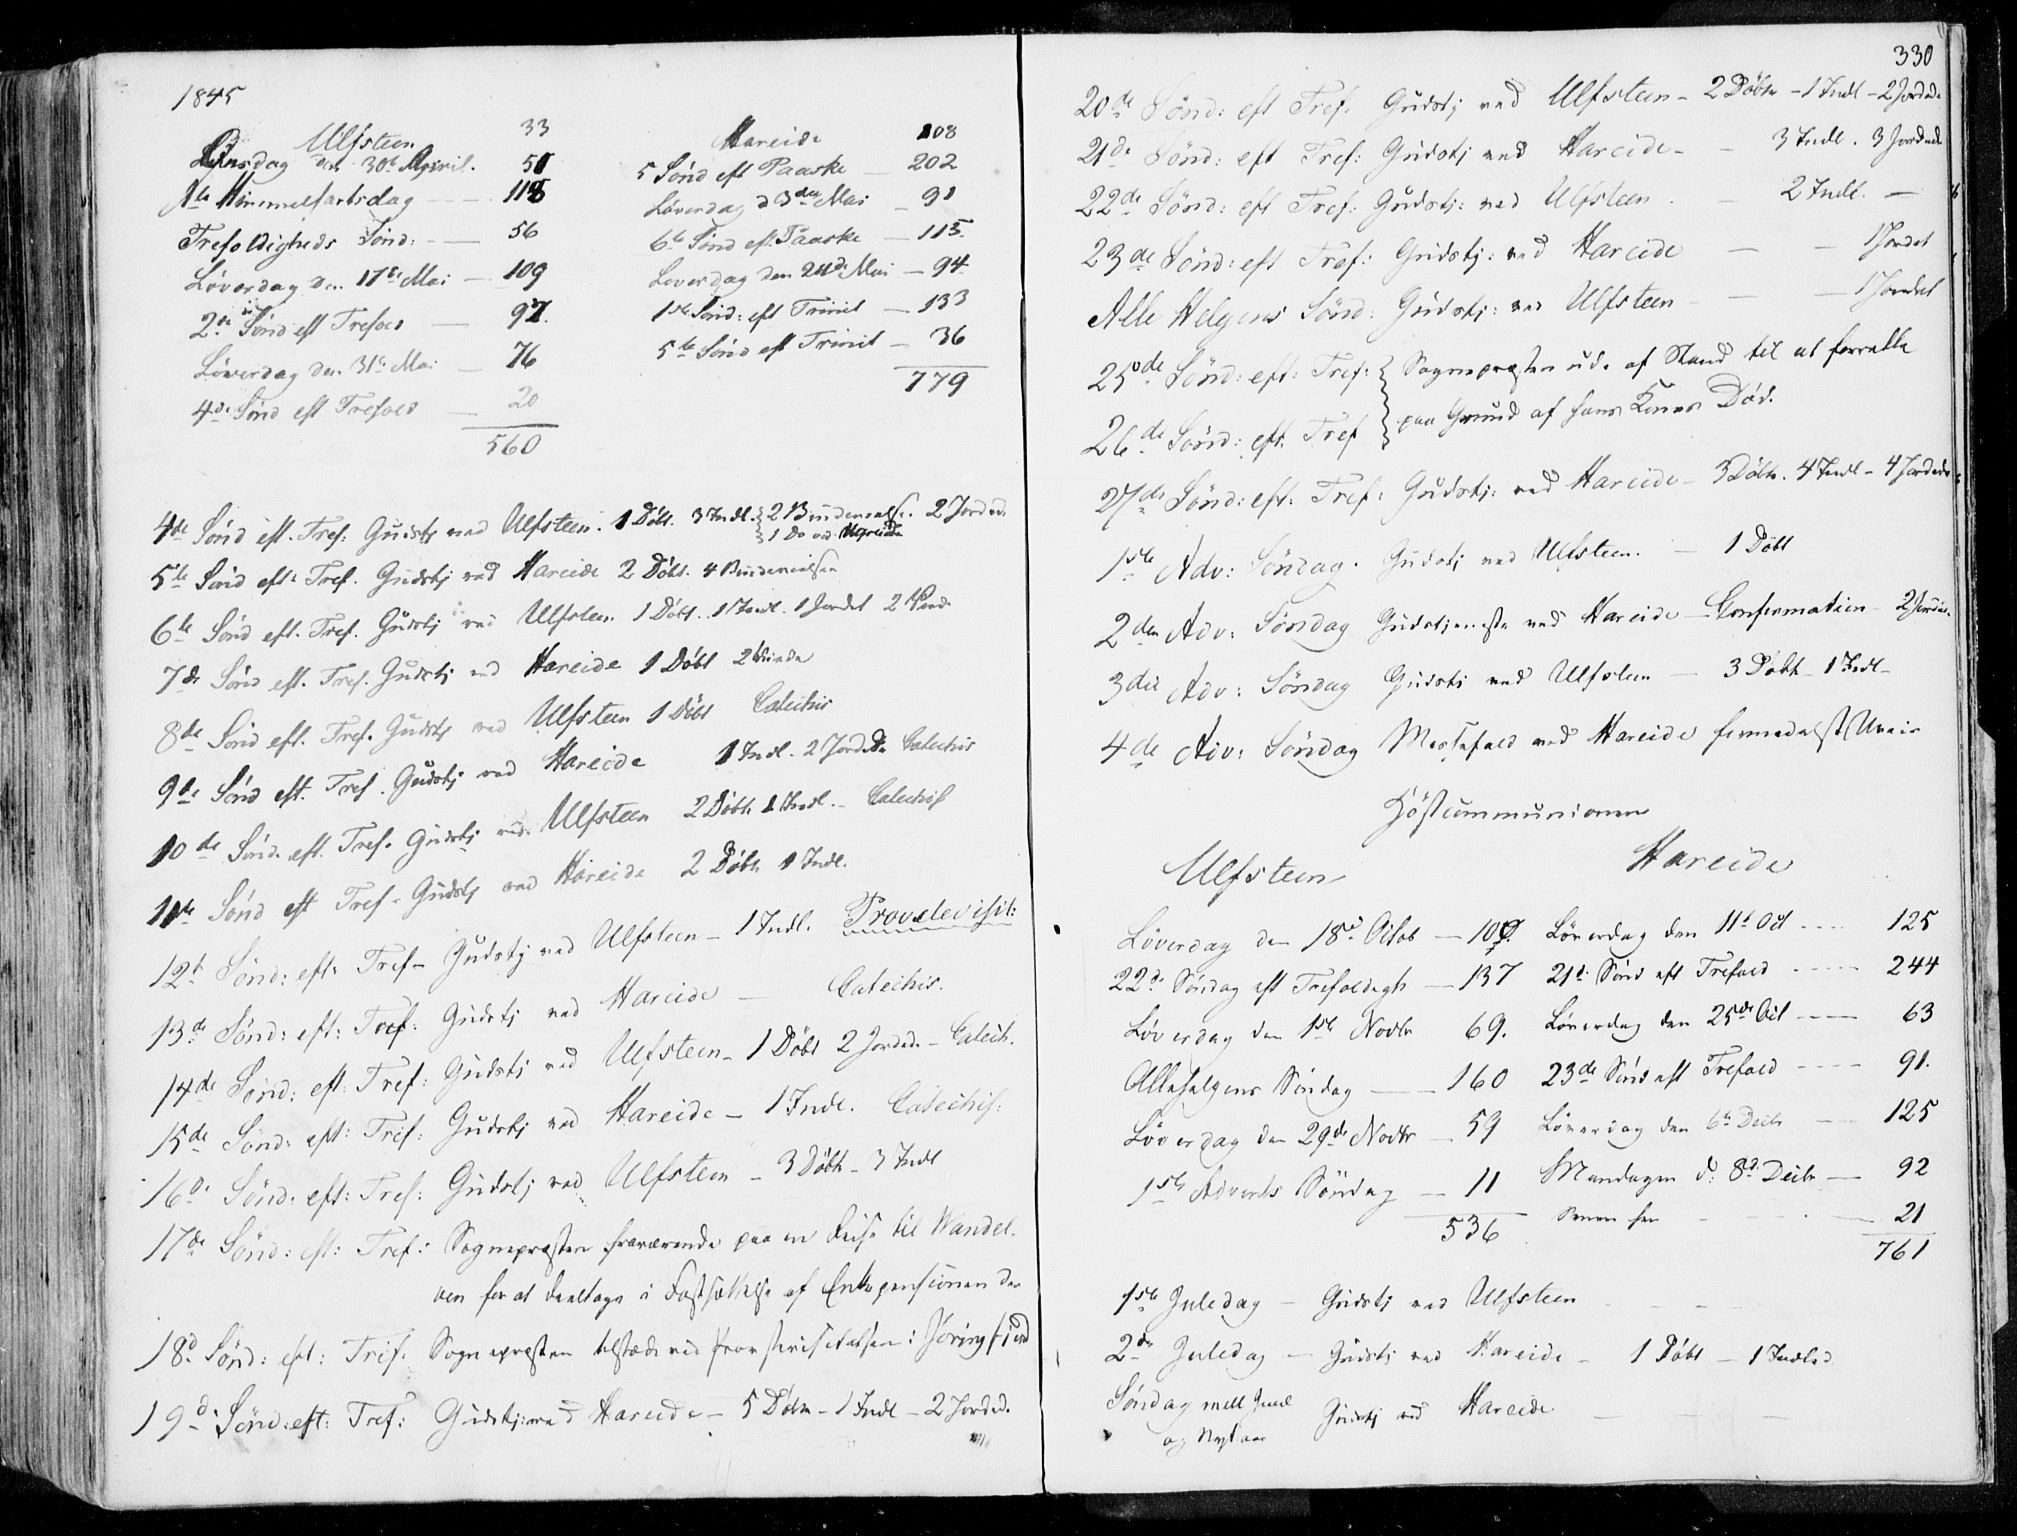 1845
Ulfsteen 33
Onsdag den 30te April. 51
Chr. Himmelfartsdag 118
Trefoldigheds Sönd: 56
Löverdag den 17de Mai 109
2den Sönd eft Trefold 97.
Löverdag den 31te Mai 76
4de Sönd eft Trefold 20
560
Hareide 108
5 Sönd eft Paaske 202
Löverdag d 3die Mai 91
6te Sönd eft. Paaske 115.
Löverdag den 24de Mai 94
1ste Sönd: eft Trinit 133
5te Sönd eft Trinit 36
779
4de Sönd eft. Tref: Gudstj ved Ulfsteen. 1 Döbt. 3 Indl. 2 Brudevielse. 2 Jordede
1 Do ved Hareide
5te Sönd eft: Tref. Gudstj ved Hareide 2 Döbt. 4 Brudevielser
6te Sönd eft. Tref. Gudstj ved Ulfsteen 1 Döbt. 1 Indl. 1 Jordet 2 Viede
7de Sönd eft. Tref. Gudstj ved Hareide 1 Döbt 2 Viede
8de Sönd eft. Tref. Gudstj ved Ulfsteen 1 Döbt Catechis
9de Sönd eft. Tref. Gudstj ved Hareide 1 Indl. 2 Jordede Catechis
10de Sönd. eft. Tref. Gudstj ved Ulfsteen 2 Döbte 1 Indl. - Catechis
11te Sönd eft Tref. Gudstj ved Hareide 2 Döbte 1 Indl.
12te Sönd: eft: Tref- Gudstj ved Ulfsteen - 1 Indl. Provstevisit:
13de Sönd: eft: Tref: Gudstj ved Hareide - Catechis.
14de Sönd: eft: Tref: Gudstj ved Ulfsteen - 1 Döbt 2 Jordede - Catech.
15de Sönd: eft: Tref: Gudstj ved Hareide - 1 Indl. Catechis:
16de Sönd: eft: Tref: Gudstj ved Ulfsteen - 3 Döbte - 3 Indl
17de Sönd: eft: Tref: Sognepræsten fraværende paa en Reise til Vandel-
ven for at deeltage i Fastsættelse af Enkepensionen der
18de Sönd: eft: Tref. Sognepræsten tilstæde ved Provstevisitatsen i Jöringfjord
19de Sönd: eft: Tref: Gudstj: ved Hareide - 5 Döbte - 1 Indl - 2 Jordede
330
20de Sönd: eft Tref: Gudstj ved Ulfsteen - 2 Döbte - 1 Indl - 2 Jordede
21de Sönd: eft Tref: Gudstj ved Hareide - 3 Indl. 3 Jordede
22de Sönd: eft Tref: Gudstj: ved Ulfsteen - 2 Indl. -
23de Sönd: eft Tref: Gudstj: ved Hareide - 1 Jordet
Alle Helgens Sönd: Gudstj: ved Ulfsteen - 1 Jordet
25de Sönd: eft: Tref: Sognepræsten ude af Stand til at forrette
26de Sönd: eft. Tref paa Grund af hans Kones Död.
27de Sönd: eft: Tref: Gudstj: ved Hareide - 3 Döbte. 4 Indl - 4 Jordede
1ste Adv: Söndag. Gudstj ved Ulfsteen. - 1 Döbt
2den Adv: Söndag Gudstjeneste ved Hareide - Confirmation - 2 Jordede
3die Adv: Söndag Gudstj ved Ulfsteen - 3 Döbte - 1 Indl -
4de Adv: Söndag Messefald ved Hareide formedelst Uveir
Höstcommunionen
Ulfsteen
Löverdag den 18de Octob - 100.
22de Söndag eft Trefoldigh - 137
Löverdag den 1ste Novbr 69.
Allehelgens Söndag - 160
Löverdag den 29de Novbr - 59
1ste Advents Söndag - 11
536
Hareide
Löverdag den 11te Oct 125
21de Sönd eft Trefold 244
Löverdag den 25de Oct 63
23de Sönd eft Trefold 91.
Löverdag den 6te Decbr 125
Mandagen d: 8de Decbr 92
21
761
1ste Juledag - Gudstj ved Ulfsteen
2den Juledag - Gudstj ved Hareide - 1 Döbt - 1 Indled
Söndag mell Juul
og Nytaar Gudstj ved Hareide